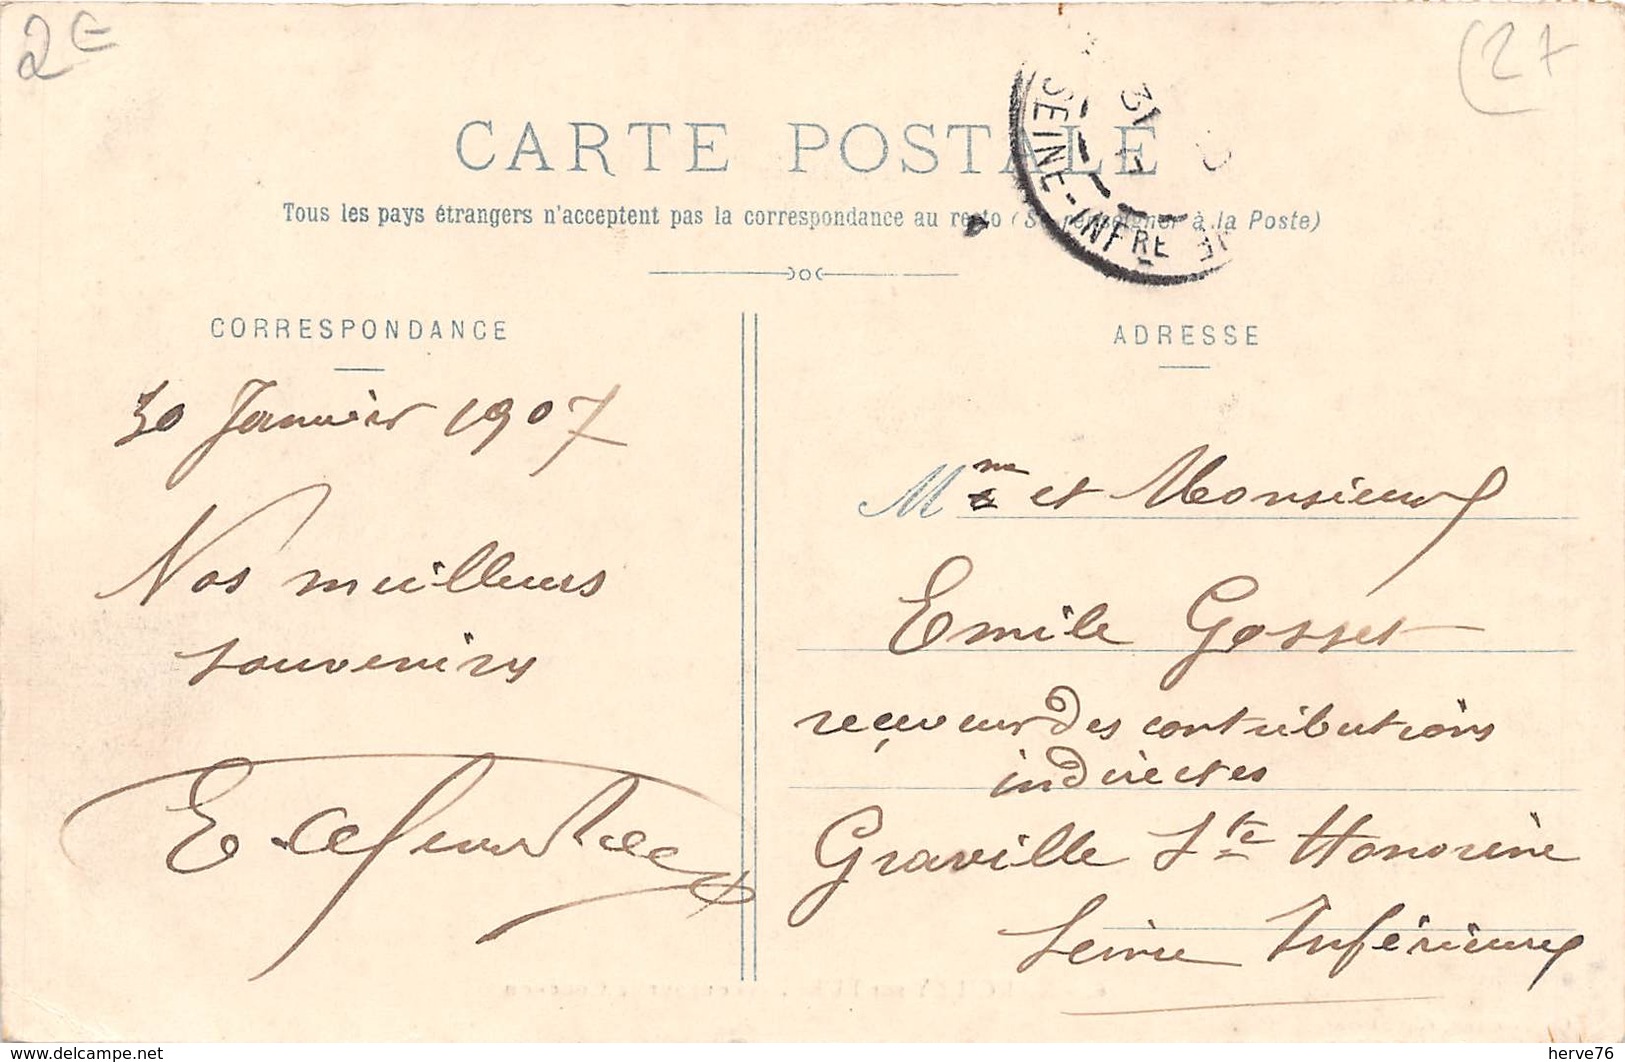 2E
(27
CARTE POSTALE
Tous les pays étrangers n'acceptent pas la correspondance au recto (Se renseigner à la Poste)
31
SEINE-INFRE
CORRESPONDANCE
ADRESSE
30 Janvier 1907
Nos meilleurs
souvenirs
Mme et Monsieur
Emile Gosset
receveur des contributions
indirectes
Graville Ste Honorine
Seine Inférieure
delcampe.net
herve76